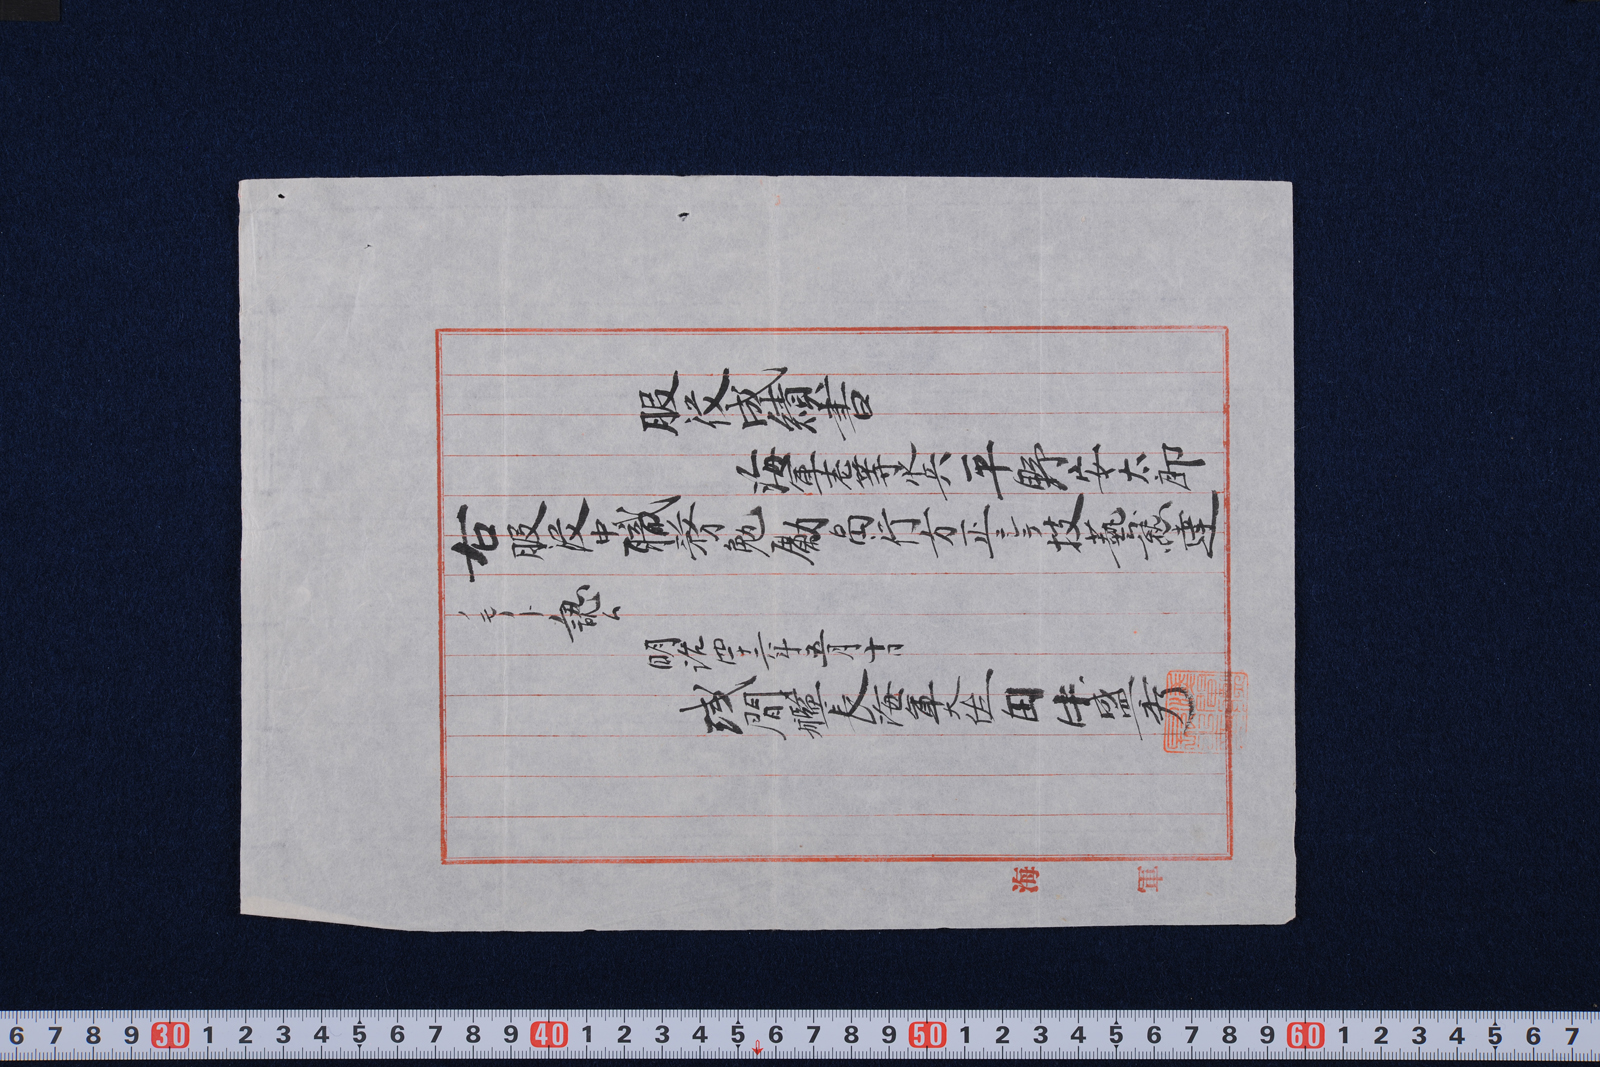 服役成績書
海軍壱等水兵 平野安太郎
右服役中職務勉励品行方正ニシテ技藝熟達
ノモノト認ム
明治四十二年五月十日
浅間艦長海軍大佐 田中盛秀
海軍
6 7 8 9 30 1 2 3 4 5 6 7 8 9 40 1 2 3 4 5 6 7 8 9 50 1 2 3 4 5 6 7 8 9 60 1 2 3 4 5 6 7